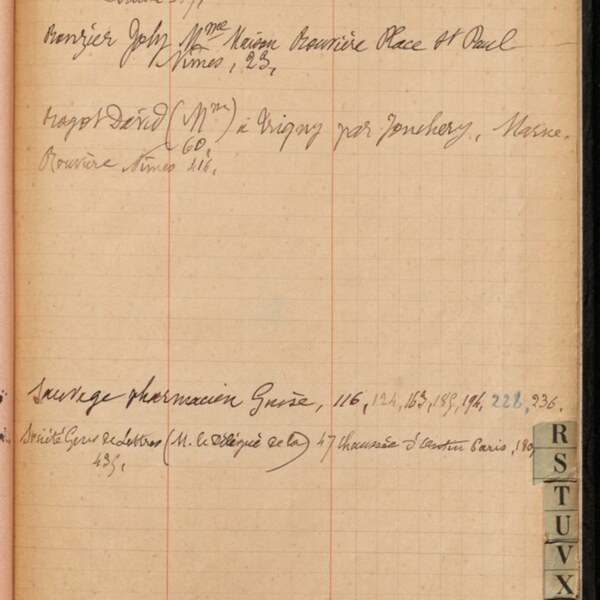 Ronzier Joly Mme Maison Rouvière Place St Paul
Nîmes, 23,
Ragot David (Mme) à Trigny par Jonchery, Marne.
60,
Rouvière Nîmes 416,
Sauvage pharmacien Guise, 116, 124, 163, 185, 194, 226, 236.
Société Gens de Lettres (M. le Délégué de la) 47 Chaussée d'Antin Paris, 180
435,
R
S
T
U
V
X